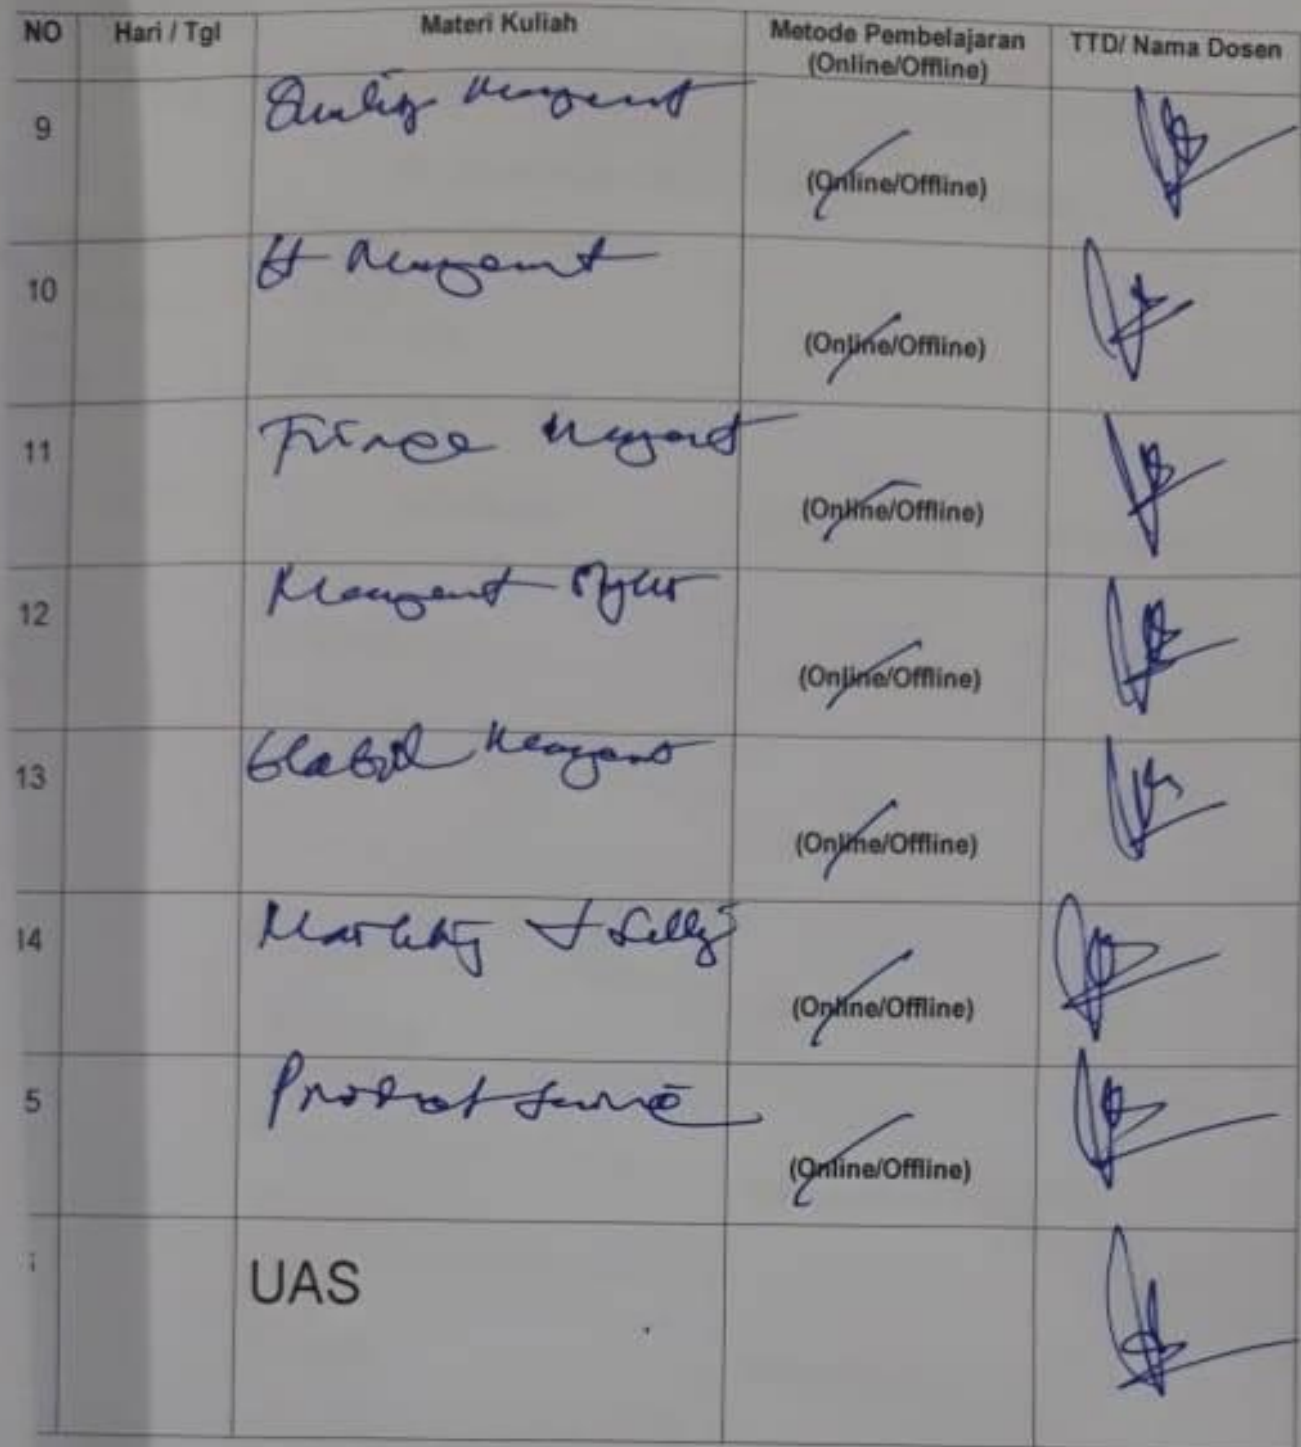 NO Hari / Tgl Materi Kuliah Metode Pembelajaran TTD/ Nama Dosen
(Online/Offline)
9 Quality Management
(Online/Offline)
10 Management
(Online/Offline)
11 Finance Management
(Online/Offline)
12 Management
(Online/Offline)
13 Global Management
(Online/Offline)
14 Marketing & Selling
(Online/Offline)
5 Product Service
(Online/Offline)
UAS